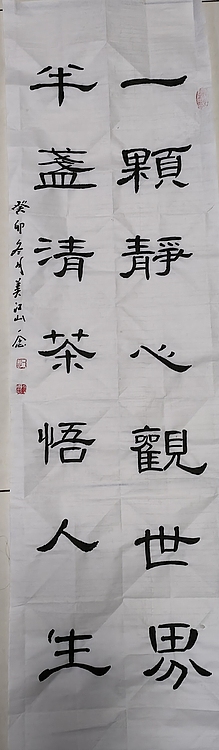 一顆靜心觀世界
半盞清茶悟人生
癸卯冬月美江山一念